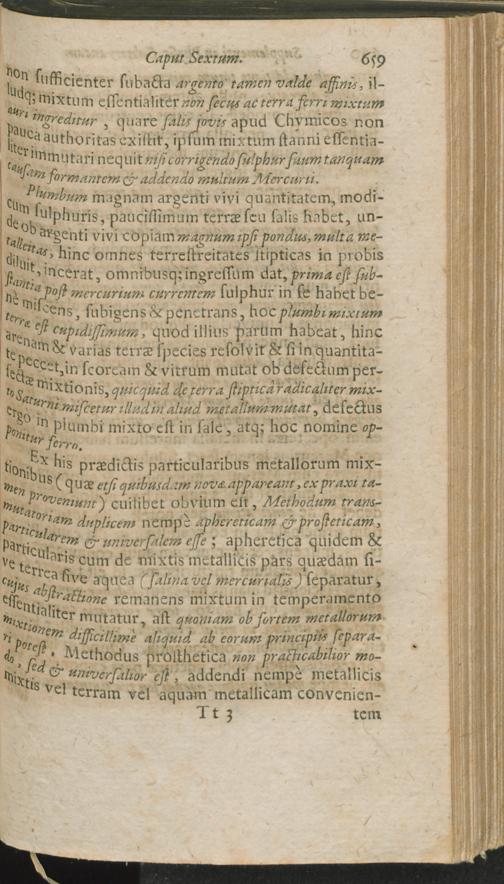 Caput Sextum. 659
non sufficienter subacta argento tamen valde affinis, il-
ludq; mixtum essentialiter non secus ac terra ferri mixtum
auri ingreditur, quare salis jovis apud Chymicos non
pauca authoritas existit, ipsum mixtum stanni essentia-
liter immutari nequit nisi corrigendo sulphur suum tanquam
causam formantem & addendo multum Mercurii.
Plumbum magnam argenti vivi quantitatem, modi-
cum sulphuris, paucissimum terræ seu salis habet, un-
de ob argenti vivi copiam magnum ipsi pondus, multa me-
talleitas, hinc omnes terrestreitates stipticas in probis
diluit, incerat, omnibusq; ingressum dat, prima est sub-
stantia post mercurium currentem sulphur in se habet be-
ne miscens, subigens & penetrans, hoc plumbi mixtum
terræ est cupidissimum, quod illius parum habeat, hinc
arenam & varias terræ species resolvit & si in quantita-
te peccet, in scoream & vitrum mutat ob defectum per-
fectæ mixtionis, quicquid de terra stiptica radicaliter mix-
to Saturni miscetur illud in aliud metallum mutat, defectus
ergo in plumbi mixto est in sale, atq; hoc nomine op-
ponitur ferro.
Ex his prædictis particularibus metallorum mix-
tionibus (quæ etsi quibusdam novæ appareant, ex praxi ta-
men proveniunt) cuilibet obvium est, Methodum trans-
mutatoriam duplicem nempè aphereticam & prosteticam,
particularem & universalem esse; apheretica quidem &
particularis cum de mixtis metallicis pars quædam si-
ve terrea sive aquea (salina vel mercurialis) separatur,
cujus abstractione remanens mixtum in temperamento
essentialiter mutatur, ast quoniam ob fortem metallorum
mixtionem difficillimè aliquid ab eorum principiis separa-
ri potest. Methodus prosthetica non practicabilior mo-
do, sed & universalior est, addendi nempè metallicis
mixtis vel terram vel aquam metallicam convenien-
Tt 3 tem